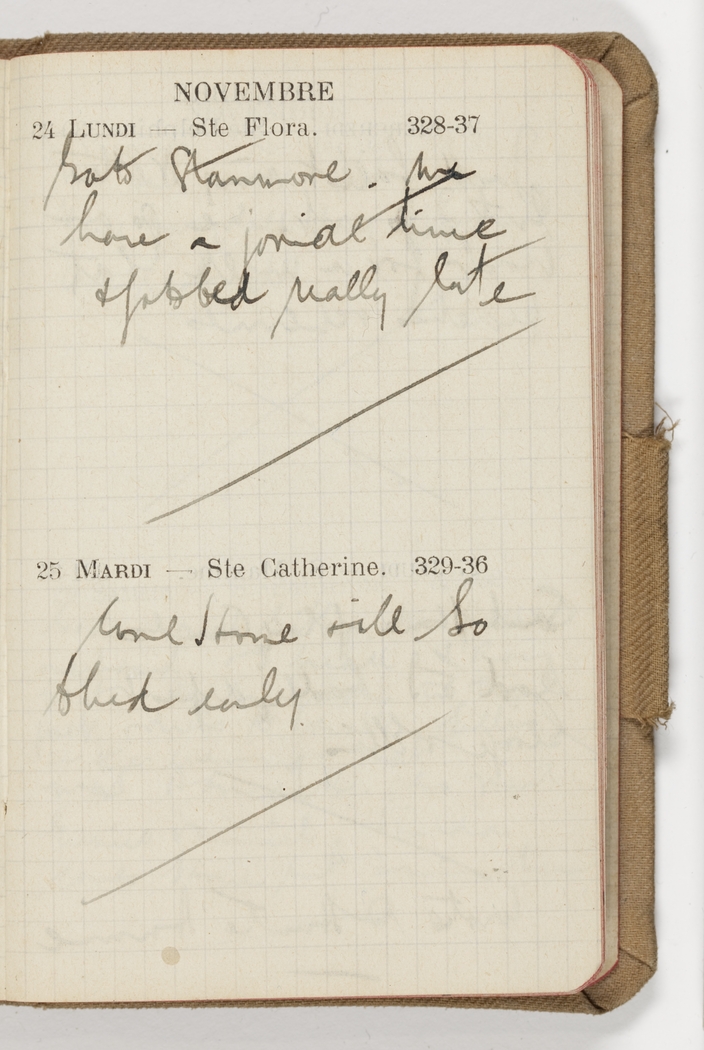 NOVEMBRE
24 LUNDI — Ste Flora. 328-37
Go to Stanmore. We
have a jovial time
& to bed really late
25 MARDI — Ste Catherine. 329-36
Come Home still Go
to bed early